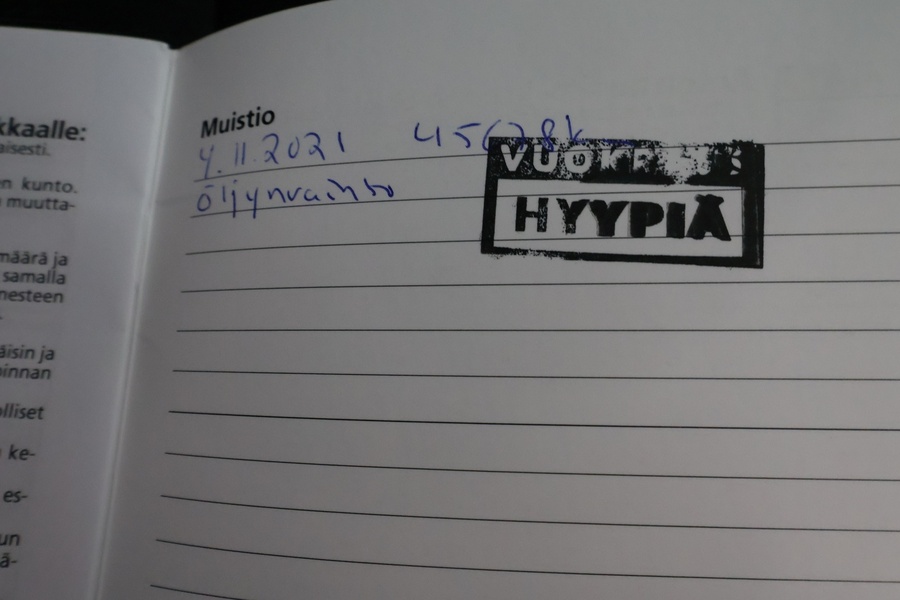 kkaalle:
aisesti.
en kunto.
muutta-
määrä ja
samalla
nesteen
äisin ja
innan
olliset
ke-
es-
un
ä-
Muistio
4.11.2021
öljynvaihto
VUOKRAUS
HYYPIÄ